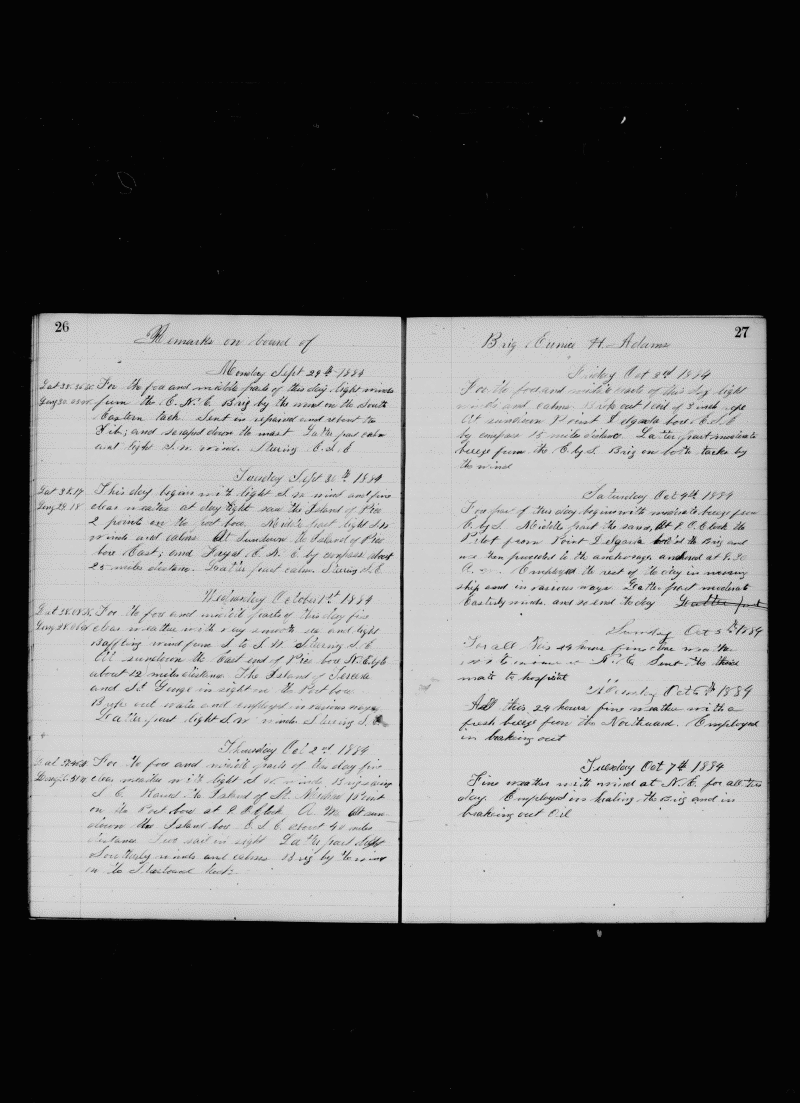 26
Remarks on board of
Monday Sept 29th 1884
For the fod and middle parts of this day light winds
from the E.N.E. Brig by the wind on the South
Eastern tack. Sent in repaired and rebent the
Jib; and scraped down the mast. Latter part calm
and light S.W. wind. Steering E.S.E
Tuesday Sept 30th 1884
This day begins with light S.W. wind and fine
clear weather at day light saw the Island of Pico
2 points on the Port bow. Middle part light S.W
winds and calms At Sundown the Island of Pico
bore East; and Fayal E.N.E by compass about
25 miles distance. Latter part calm. Steering S.E.
Wednesday October 1st 1884
For the fod and middle parts of this day fine
clear weather with very smooth sea and light
Baffling wind from S to S.W. Steering S.E
At sundown the East end of Pico bore
about 12 miles distance. The Island of
and St George in sight on the Port bow.
Broke out water and employed in various ways.
Latter part light S.W. winds Steering S.E.
Thursday Oct 2nd 1884
For the fod and middle parts of this day fine
clear weather with light S.W. winds. Brig steering
S.E. the Island of St. Michael Point
on the Port bow at A.M. At sun-
down the Island bore E.S.E about 40 miles
distance. sail in sight Latter part light
Southerly winds and calms Brig by the wind
on the Starboard tack
27
Brig Eunice H. Adams
Friday Oct 3rd 1884
For the fod and middle parts of this day light
winds and calms. Broke out 1 coil of 3 inch rope
At sundown Point Delgada bore E.S.E
by compass 15 miles distance. Latter part moderate
breeze from the E by S. Brig on both tacks by
the wind
Saturday Oct 4th 1884
Fore part of this day begins with moderate breeze from
E by S. Middle part the same, At O.Clock the
Pilot from Point Delgada the Brig and
we then proceeded to the anchorage anchored at 8.30
A.M. Employed the rest of the day in mooring
ship and in various ways Latter part moderate
Easterly winds, and so end the day Latter part
Sunday Oct 5th 1884
For all this 24 hours fine weather
N.E Sent the third
mate to hospital
Monday Oct 6th 1884
All this 24 hours fine weather with a
fresh breeze from the Northward. Employed
in braking out
Tuesday Oct 7th 1884
Fine weather with wind at N.E. for all this
day. Employed in healing the Brig and in
braking out Oil